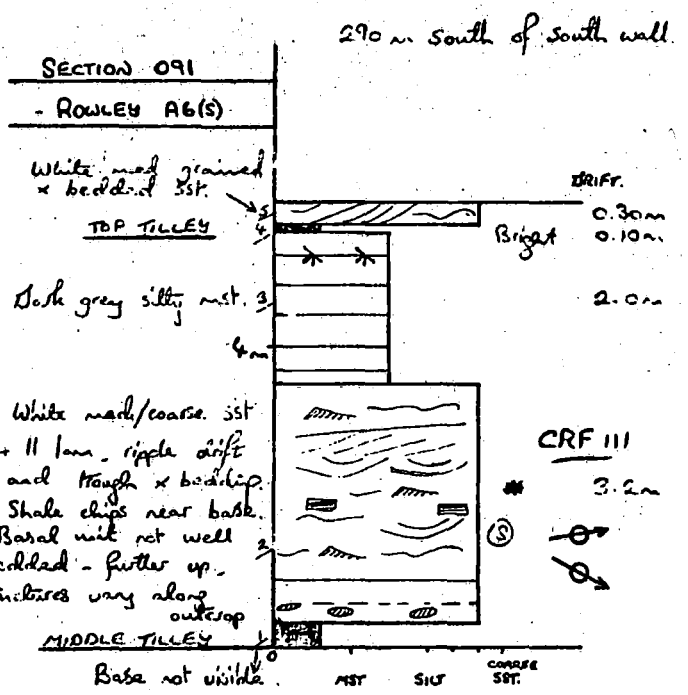 290 m South of South wall.
SECTION 091
- ROWLEY A6(S)
White med grained
x bedded sst.
DRIFT.
5
0.30m
TOP TILLEY
4
Bright
0.10m
Dark grey silty mst.
3
2.0m
4m
White med/coarse sst
+ 11 lam, ripple drift
and trough x bedding.
Shale chips near base.
Basal unit not well
bedded - further up
vary along
outcrop
CRF 111
3.2m
S
2
MIDDLE TILLEY
1
0
Base not visible.
MST
SILT
COARSE
SST.